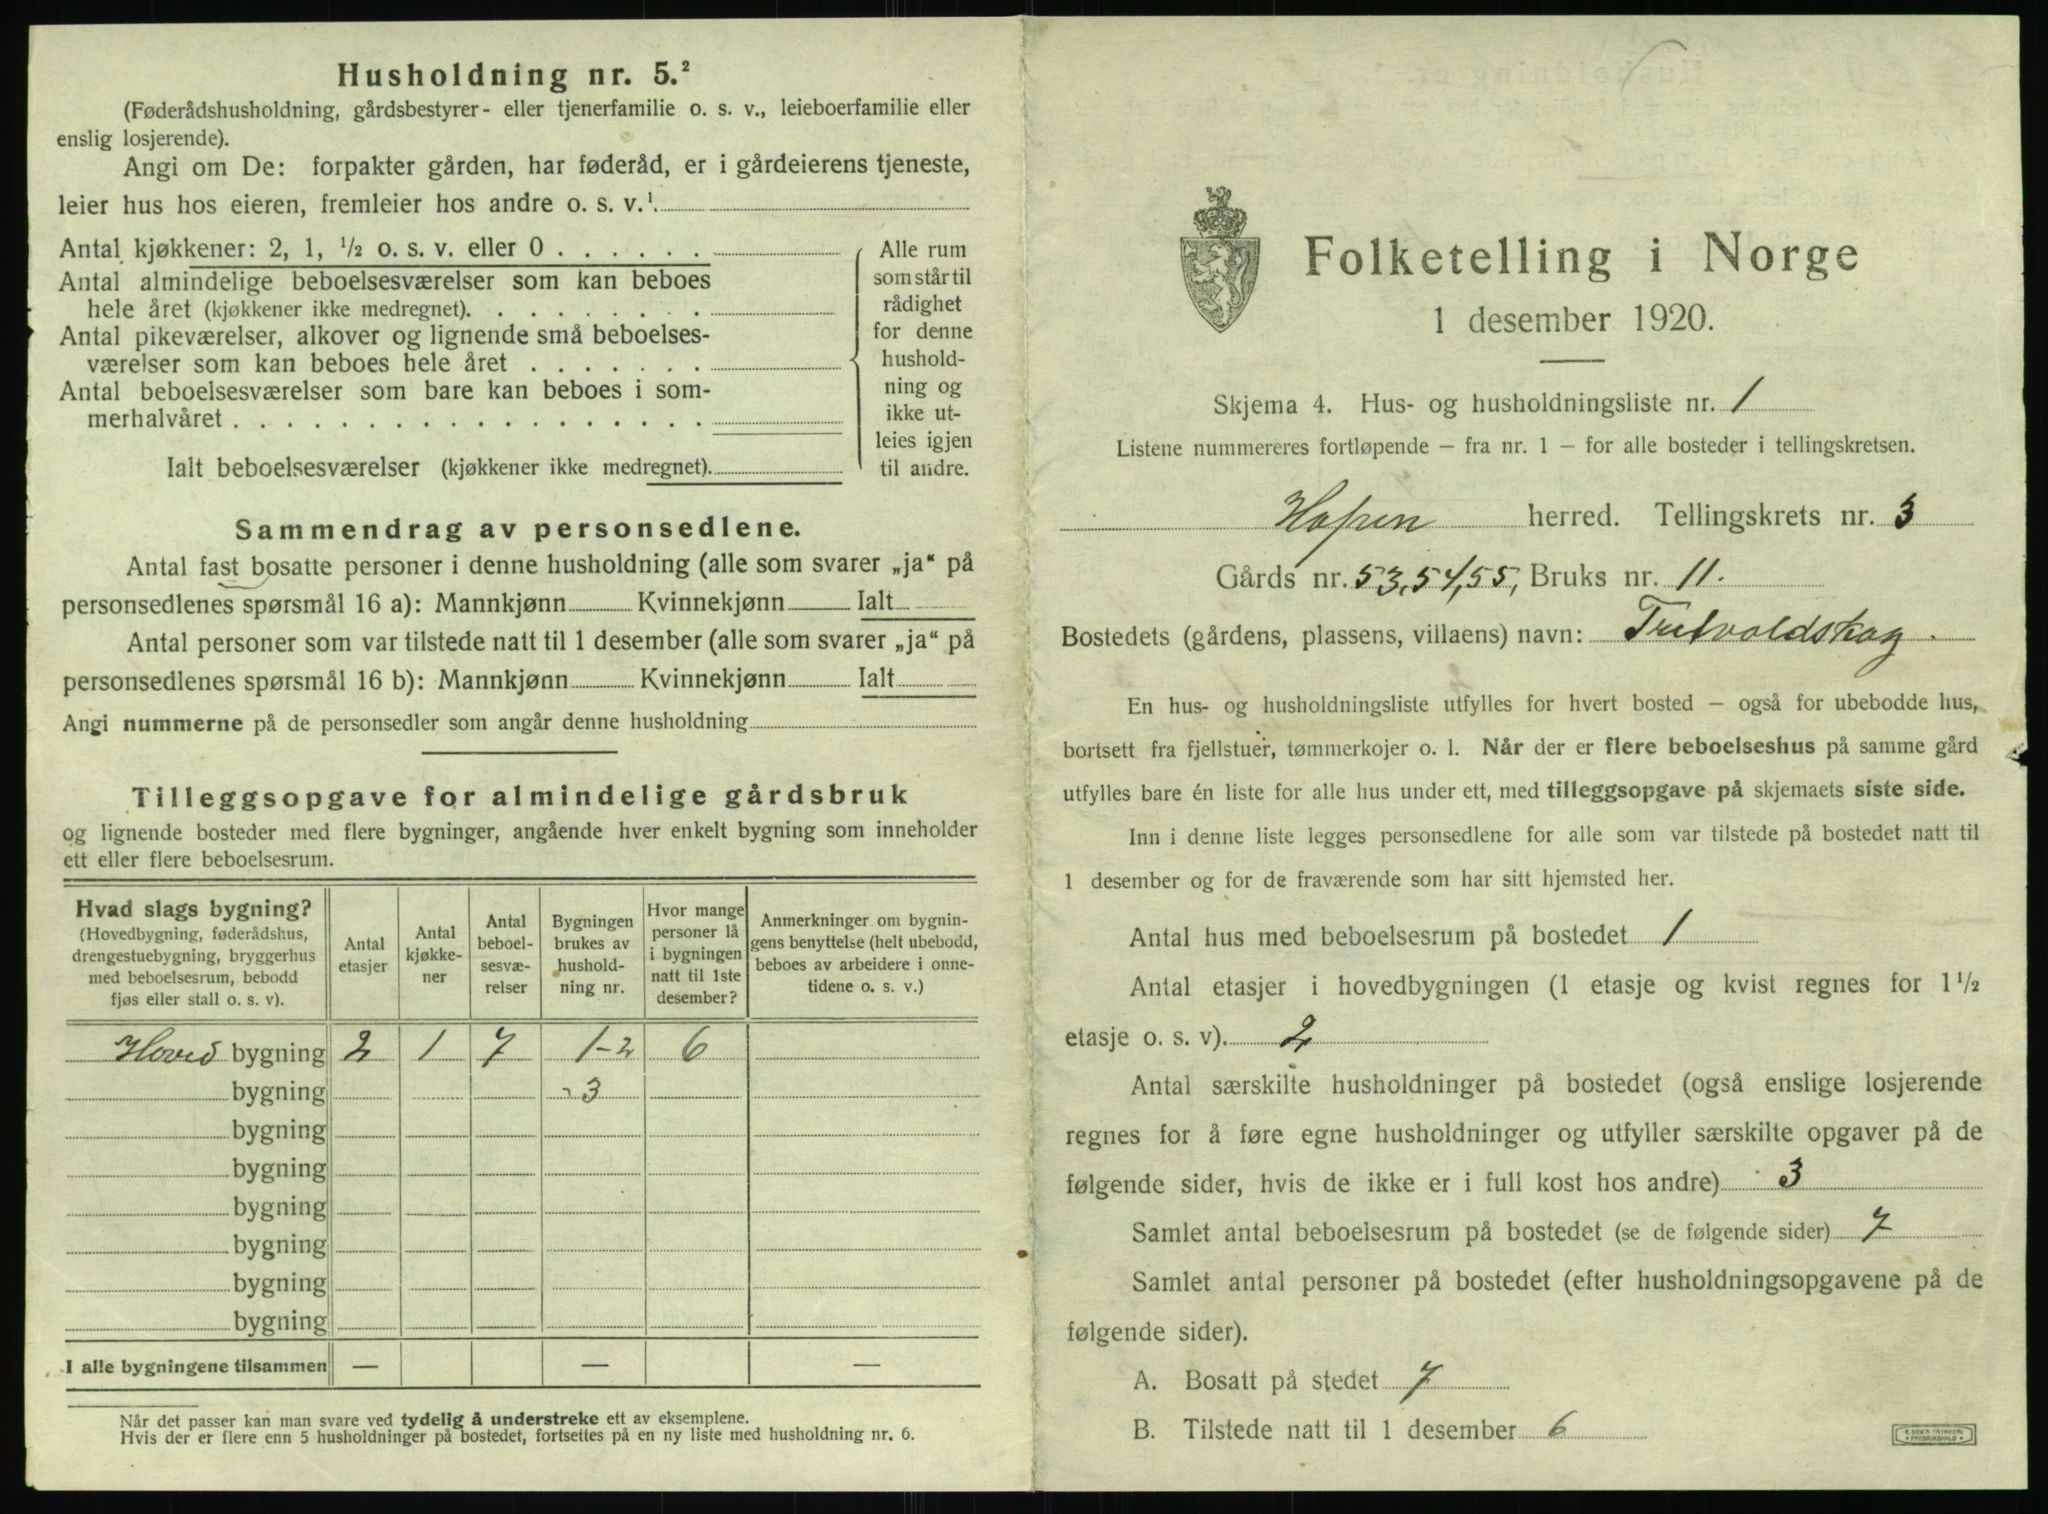 Husholdning nr. 5.²
(Føderådshusholdning, gårdsbestyrer- eller tjenerfamilie o. s. v., leieboerfamilie eller
enslig losjerende).
Angi om De: forpakter gården, har føderåd, er i gårdeierens tjeneste,
leier hus hos eieren, fremleier hos andre o. s. v.¹
Antal kjøkkener: 2, 1, ½ o. s. v. eller 0 . . . . . .
Antal almindelige beboelsesværelser som kan beboes
hele året (kjøkkener ikke medregnet). . . . . . . .
Antal pikeværelser, alkover og lignende små beboelses-
værelser som kan beboes hele året . . . . . . .
Antal beboelsesværelser som bare kan beboes i som-
merhalvåret . . . . . . . . . . . . . . . . . .
Ialt beboelsesværelser (kjøkkener ikke medregnet).
Alle rum
som står til
rådighet
for denne
hushold-
ning og
ikke ut-
leies igjen
til andre.
Sammendrag av personsedlene.
Antal fast bosatte personer i denne husholdning (alle som svarer „ja“ på
personsedlenes spørsmål 16 a): Mannkjønn Kvinnekjønn Ialt
Antal personer som var tilstede natt til 1 desember (alle som svarer „ja“ på
personsedlenes spørsmål 16 b): Mannkjønn Kvinnekjønn Ialt
Angi nummerne på de personsedler som angår denne husholdning
Tilleggsopgave for almindelige gårdsbruk
og lignende bosteder med flere bygninger, angående hver enkelt bygning som inneholder
ett eller flere beboelsesrum.
Hvad slags bygning?
(Hovedbygning, føderådshus,
drengestuebygning, bryggerhus
med beboelsesrum, bebodd
fjøs eller stall o. s. v).
Antal
etasjer
Antal
kjøkke-
ner
Antal
beboel-
sesvæ-
relser
Bygningen
brukes av
hushold-
ning nr.
Hvor mange
personer lå
i bygningen
natt til 1ste
desember?
Anmerkninger om bygnin-
gens benyttelse (helt ubebodd,
beboes av arbeidere i onne-
tidene o. s. v.)
Hoved bygning 2 1 7 1-2 6
bygning 3
bygning
bygning
bygning
bygning
bygning
bygning
I alle bygningene tilsammen — — —
Når det passer kan man svare ved tydelig å understreke ett av eksemplene.
Hvis der er flere enn 5 husholdninger på bostedet, fortsettes på en ny liste med husholdning nr. 6.
Folketelling i Norge
1 desember 1920.
Skjema 4. Hus- og husholdningsliste nr. 1
Listene nummereres fortløpende — fra nr. 1 — for alle bosteder i tellingskretsen.
herred. Tellingskrets nr. 3
Gårds nr. 53,54,55, Bruks nr. 11.
Bostedets (gårdens, plassens, villaens) navn: Tretvoldskog.
En hus- og husholdningsliste utfylles for hvert bosted — også for ubebodde hus,
bortsett fra fjellstuer, tømmerkojer o. l. Når der er flere beboelseshus på samme gård
utfylles bare én liste for alle hus under ett, med tilleggsopgave på skjemaets siste side.
Inn i denne liste legges personsedlene for alle som var tilstede på bostedet natt til
1 desember og for de fraværende som har sitt hjemsted her.
Antal hus med beboelsesrum på bostedet 1
Antal etasjer i hovedbygningen (1 etasje og kvist regnes for 1½
etasje o. s. v). 2
Antal særskilte husholdninger på bostedet (også enslige losjerende
regnes for å føre egne husholdninger og utfyller særskilte opgaver på de
følgende sider, hvis de ikke er i full kost hos andre) 3
Samlet antal beboelsesrum på bostedet (se de følgende sider) 7
Samlet antal personer på bostedet (efter husholdningsopgavene på de
følgende sider).
A. Bosatt på stedet 7
B. Tilstede natt til 1 desember 6